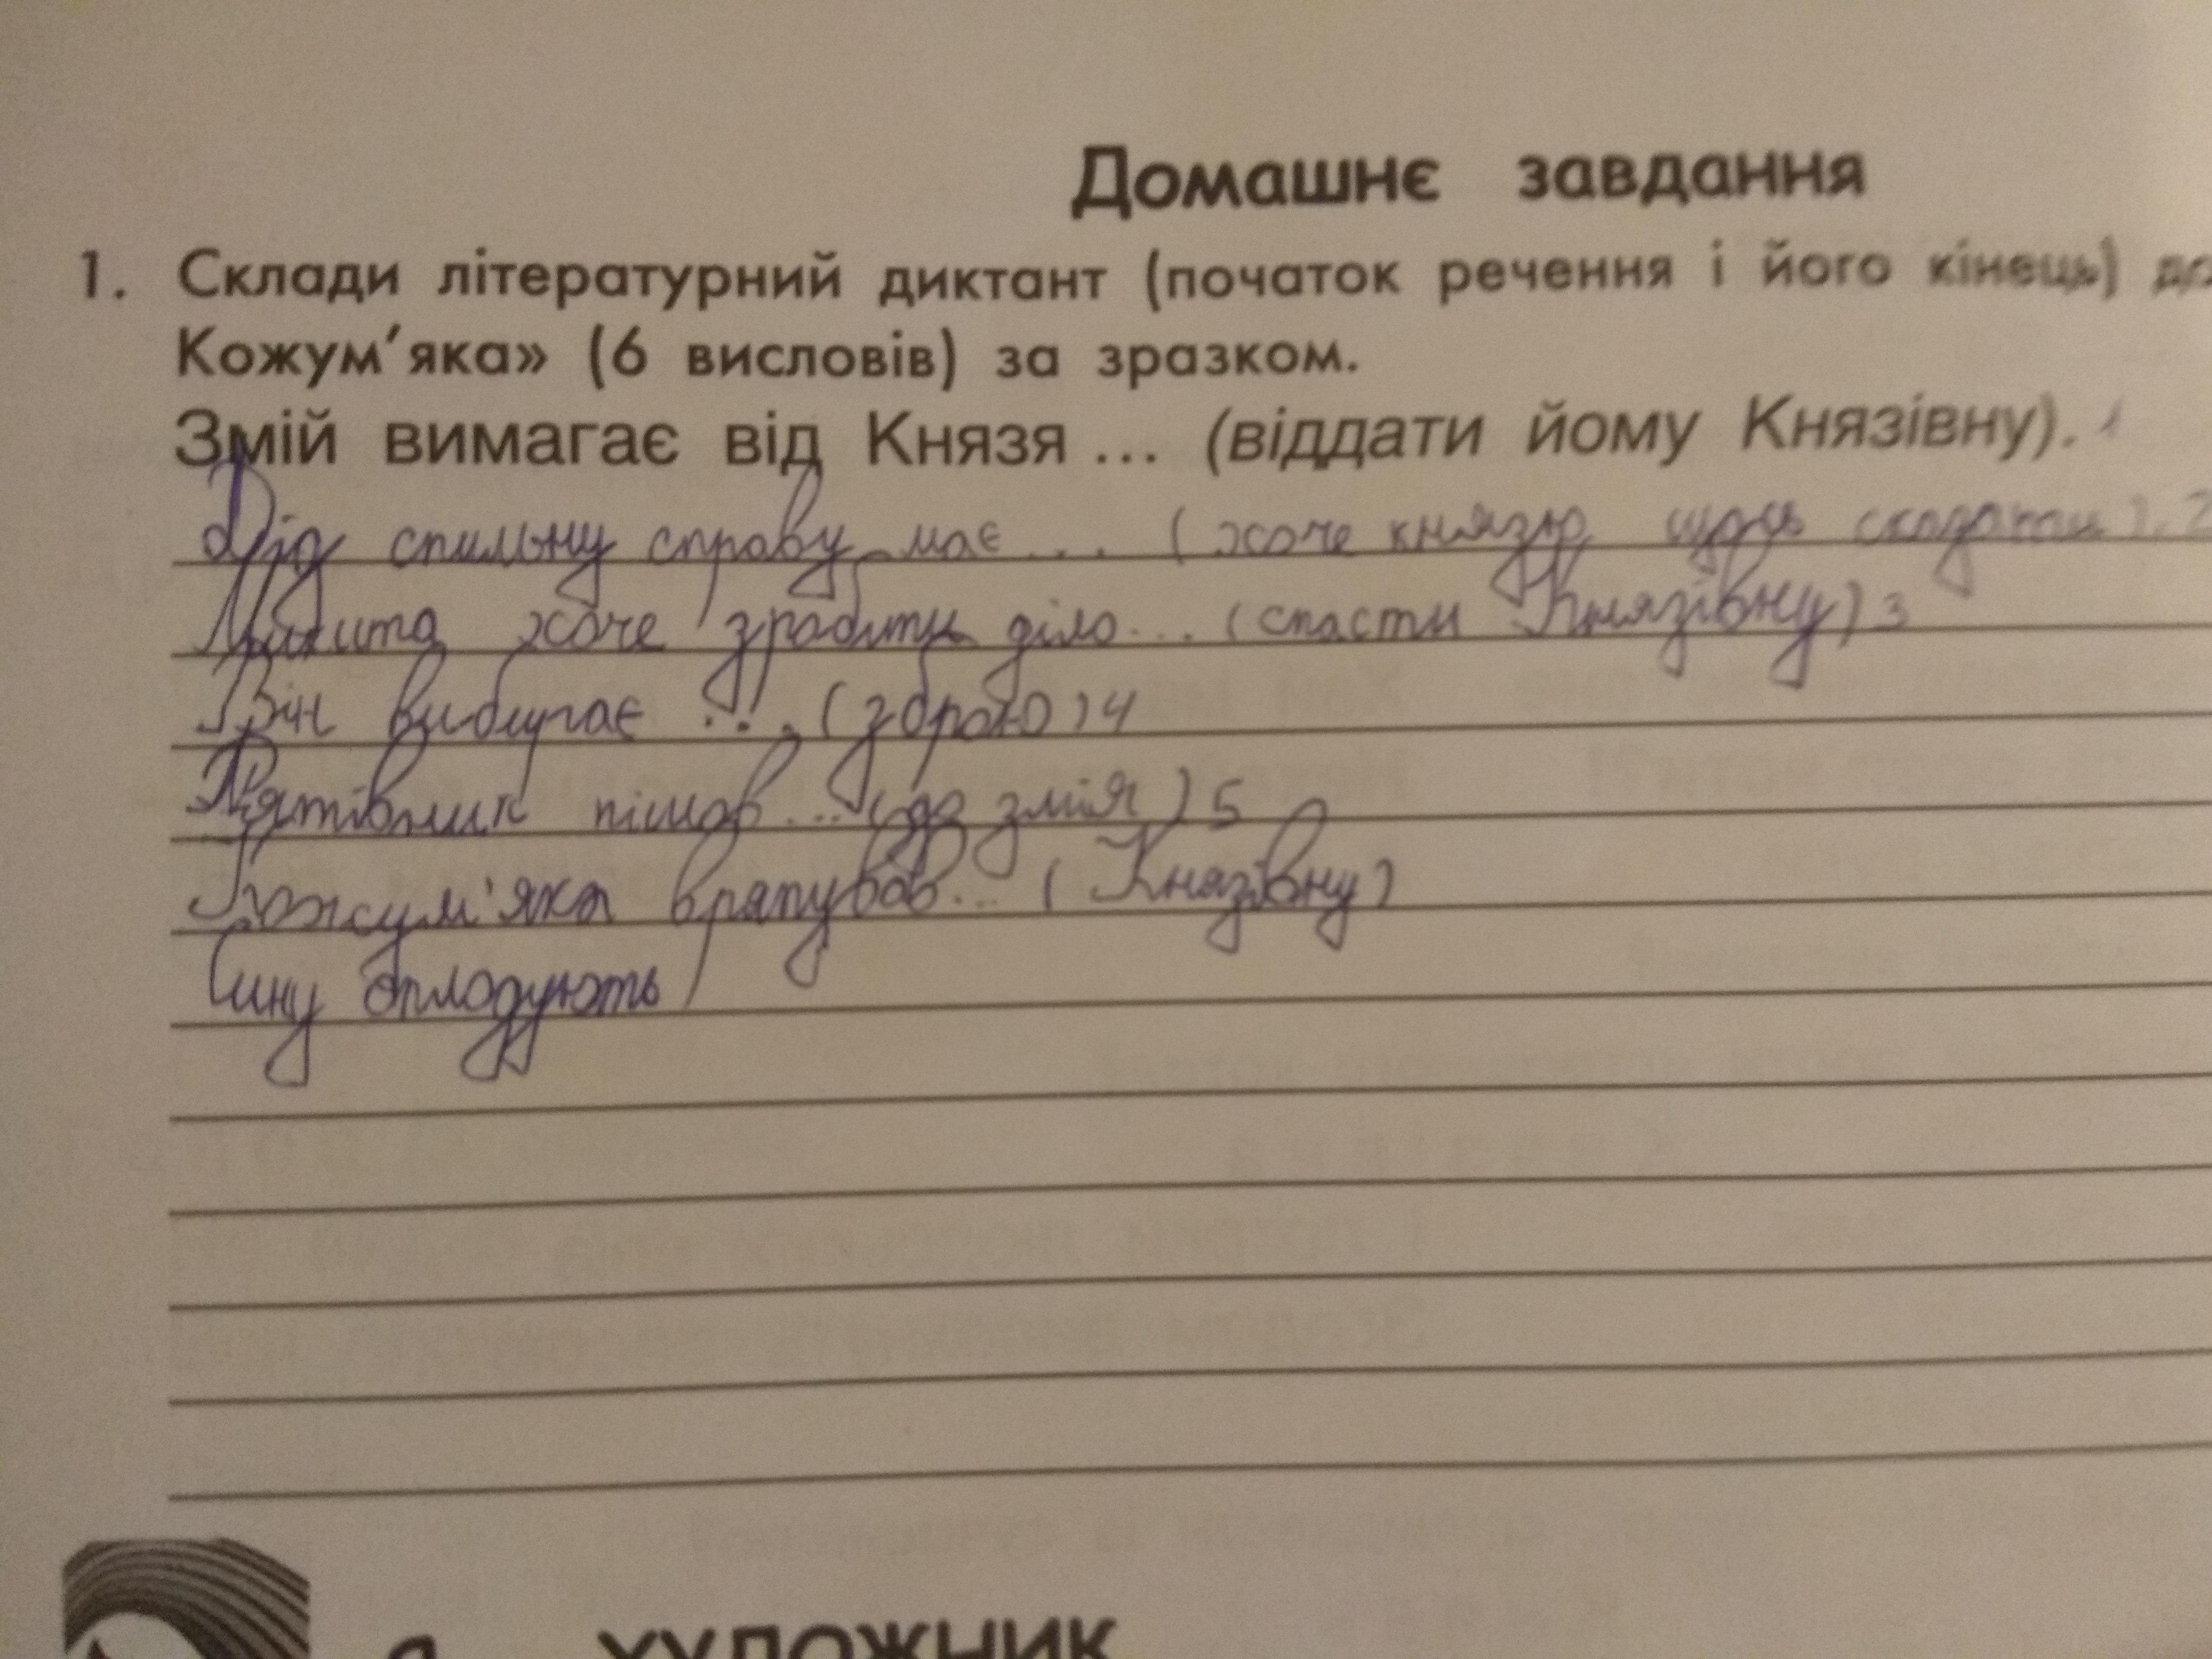 Домашнє завдання
1. Склади літературний диктант (початок речення і його кінець) до
Кожум'яка» (6 висловів) за зразком.
Змій вимагає від Князя ... (віддати йому Князівну). 1
Дід спильну справу має ... (хоче князю щось сказати). 2
Микита хоче зробити діло ... (спасти Князівну) 3
Він вибигає ... (зброю) 4
Рятівник пішов ... (до змія) 5
Кожум'яка врятував ... (Князівну)
Сину аплодують
Я ХУДОЖНИК